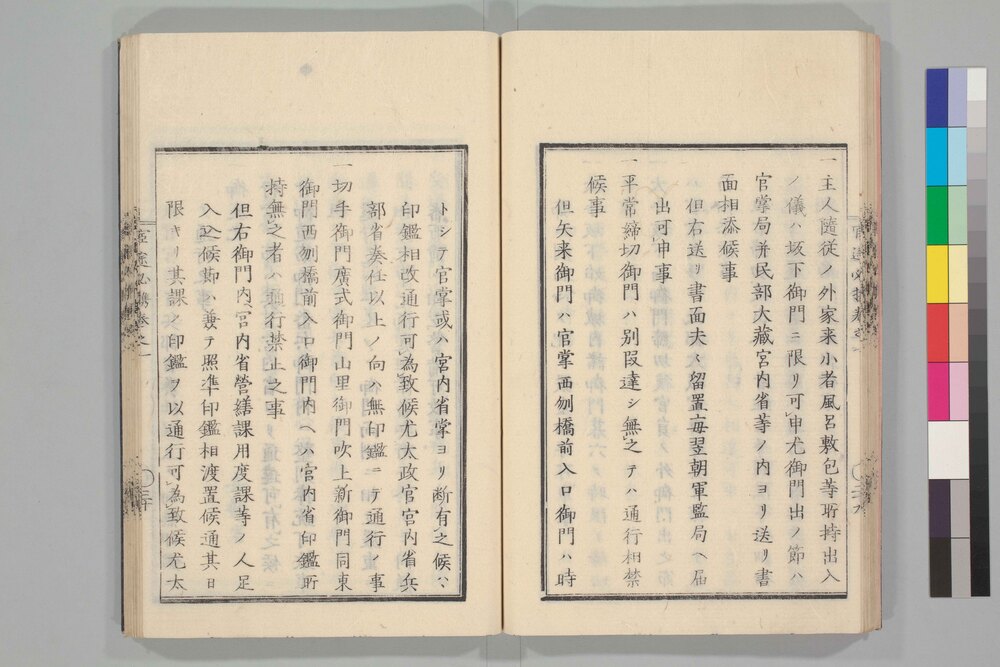 一主人隨従ノ外家来小者風呂敷包等所持出入
ノ儀ハ坂下御門ニ限リ可申尤御門出ノ節ハ
官掌局并民部大藏宮内省等ノ内ヨリ送リ書
面相添候事
但右送リ書面夫々留置毎翌朝軍監局ヘ届
出可申事
一平常締切御門ハ別段達シ無之テハ通行相禁
候事
但矢来御門ハ官掌西刎橋前入口御門ハ時
トシテ官掌或ハ宮内省掌ヨリ断有之候ハヽ
印鑑相改通行可為致候尤太政官宮内省兵
部省奏任以上ノ向ハ無印鑑ニテ通行ノ事
一切手御門廣式御門山里御門吹上新御門同東
御門西刎橋前入口御門内ヘハ宮内省印鑑所
持無之者ハ通行禁止之事
但右御門内宮内省營繕課用度課等ノ人足
入込候節ハ兼テ照準印鑑相渡置候通其日
限キリ其課ノ印鑑ヲ以通行可為致候尤太